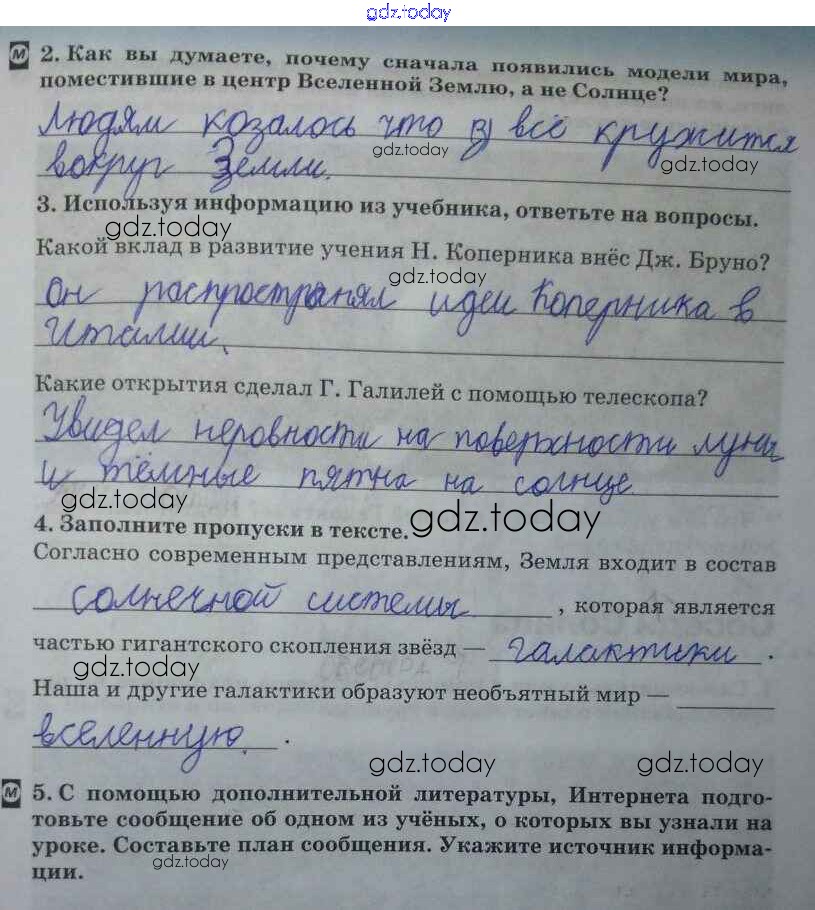 gdz.today
М 2. Как вы думаете, почему сначала появились модели мира,
поместившие в центр Вселенной Землю, а не Солнце?
Людям козалось что всё кружится
gdz.today gdz.today
вокруг Земли.
3. Используя информацию из учебника, ответьте на вопросы.
gdz.today
Какой вклад в развитие учения Н. Коперника внёс Дж. Бруно?
gdz.today
Он распространял идеи Коперника в
Италии.
Какие открытия сделал Г. Галилей с помощью телескопа?
Увидел неровности на поверхности луны
и тёмные пятна на солнце.
gdz.today
4. Заполните пропуски в тексте. gdz.today
Согласно современным представлениям, Земля входит в состав
солнечной системы, которая является
частью гигантского скопления звёзд — галактики.
gdz.today
Наша и другие галактики образуют необъятный мир —
вселенную.
gdz.today gdz.today
М 5. С помощью дополнительной литературы, Интернета подго-
товьте сообщение об одном из учёных, о которых вы узнали на
уроке. Составьте план сообщения. Укажите источник информа-
gdz.today
ции.